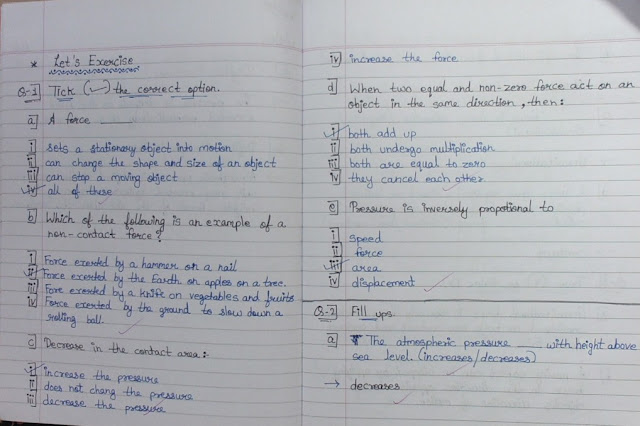 * Let's Exercise
Q-1 Tick (✓) the correct option.
a) A force ____
i sets a stationary object into motion
ii can change the shape and size of an object
iii can stop a moving object
iv all of these
b) Which of the following is an example of a
non-contact force?
i Force exerted by a hammer on a nail
ii Force exerted by the Earth on apples on a tree.
iii Fore exerted by a knife on vegetables and fruits
iv Force exerted by the ground to slow down a
rolling ball.
c) Decrease in the contact area:
i increase the pressure
ii does not chang the pressure
iii decrease the pressure
iv increase the force
d) When two equal and non-zero force act on an
object in the same direction, then:
i both add up
ii both undergo multiplication
iii both are equal to zero
iv they cancel each other
e) Pressure is inversely propotional to
i speed
ii force
iii area
iv displacement
Q-2 Fill ups.
a) The atmospheric pressure ____ with height above
sea level. (increases/decreases)
→ decreases